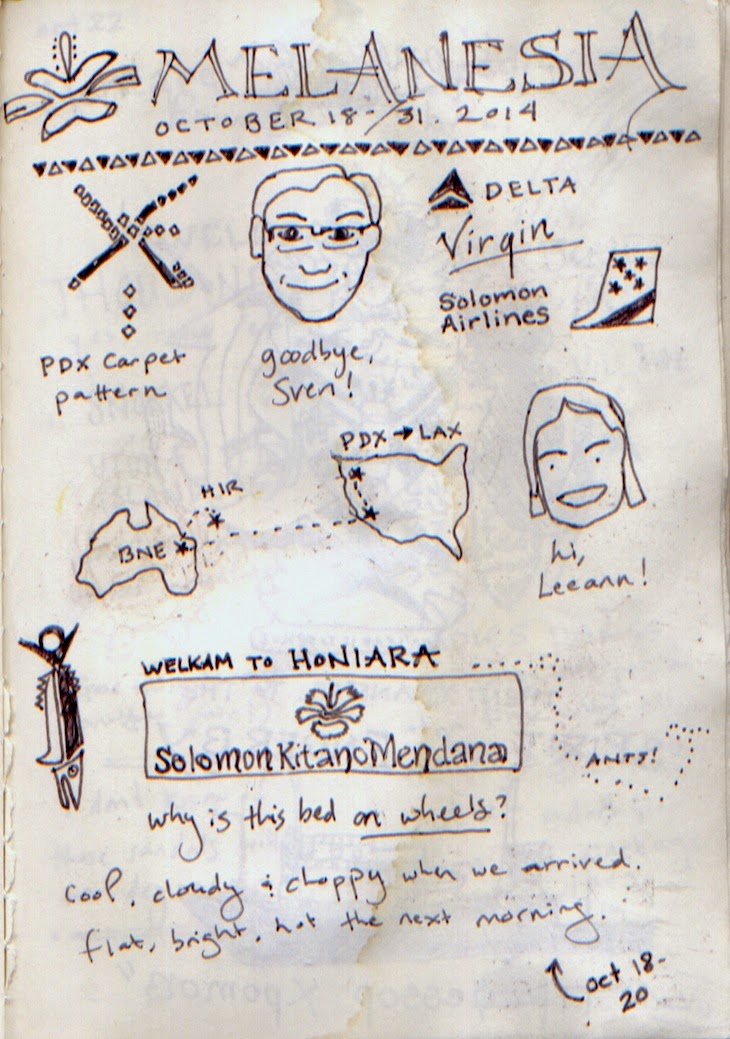 MELANESIA
OCTOBER 18-31. 2014
DELTA
Virgin
Solomon
Airlines
PDX Carpet
pattern
goodbye,
Sven!
PDX → LAX
HIR
BNE
hi,
Leeann!
WELKAM TO HONIARA
Solomon Kitano Mendana
ANTS!
why is this bed on wheels?
Cool, cloudy & choppy when we arrived.
flat, bright, hot the next morning.
oct 18-
20